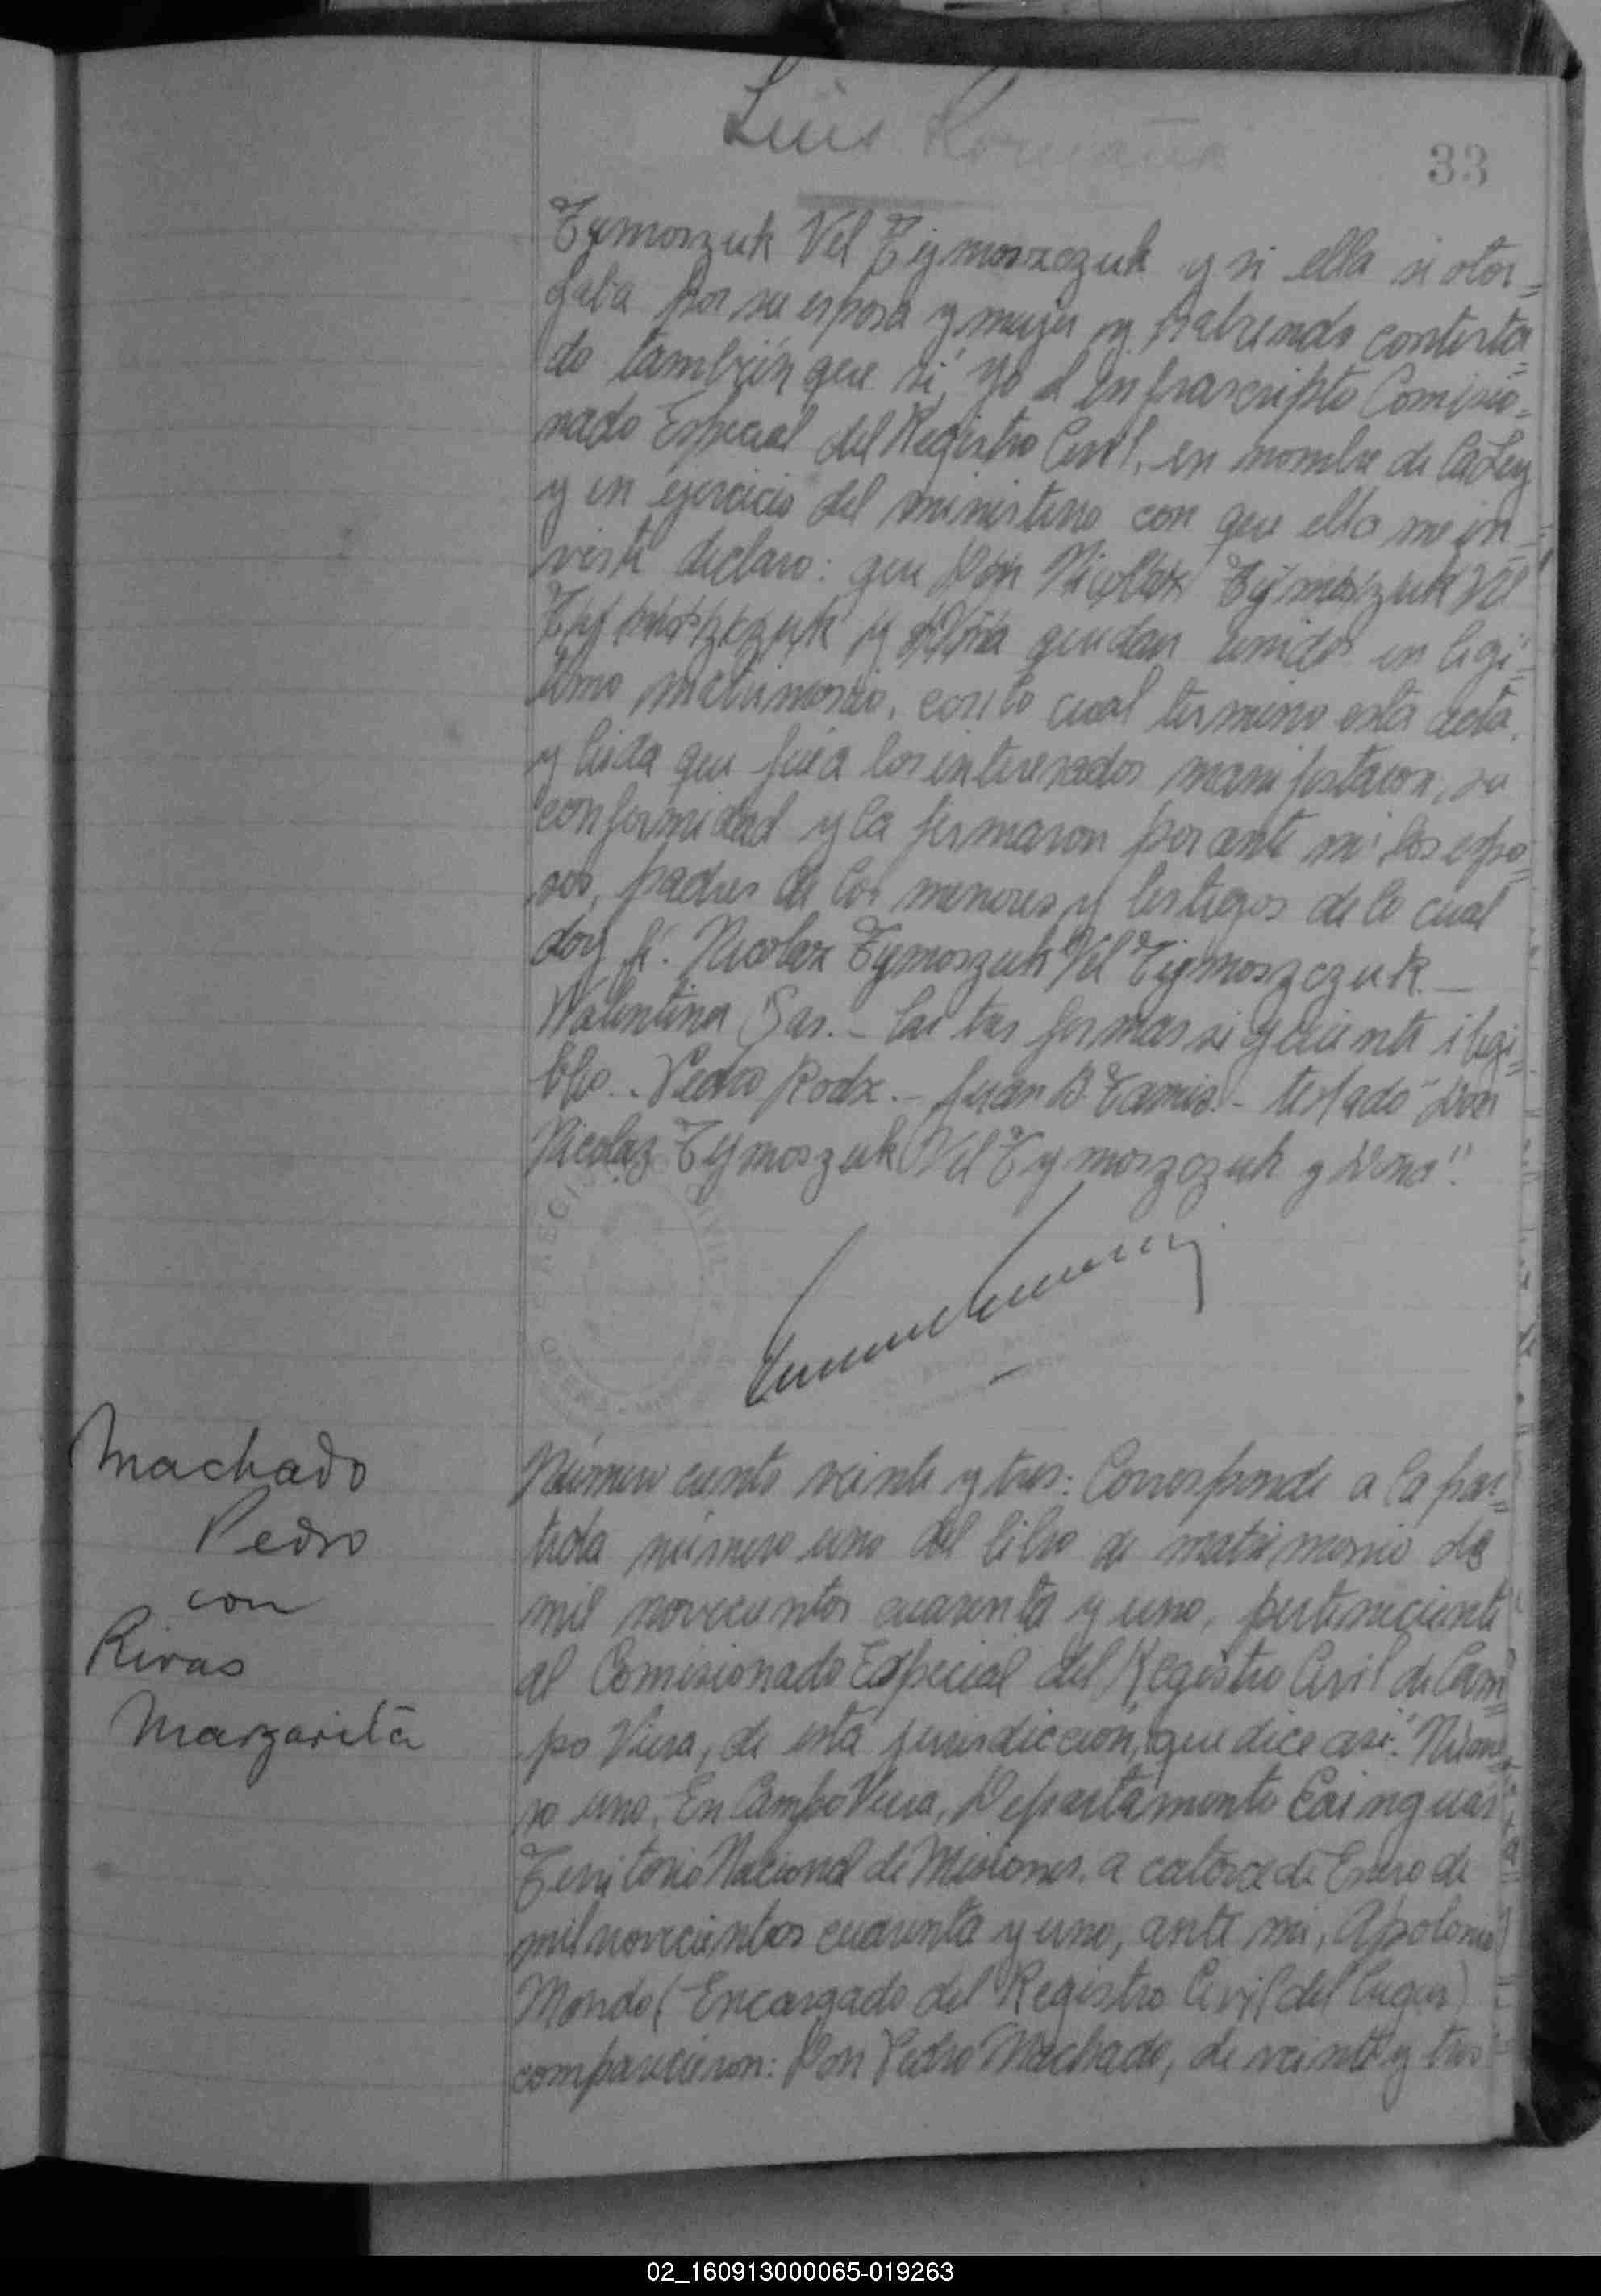 Luis
33
Tymoszuk Vel Tymoszczuk y si ella si otor=
gaba por su esposa y mujer y habiendo contesta=
do también que si, yo el infrascripto Comisio=
nado Especial del Registro Civil, en nombre de la Ley
y en ejercicio del ministerio con que ella me in=
viste declaro: que Don Nicolaz Tymoszuk Vel
Tymoszczuk y Doña quedan unidos en legi=
timo matrimonio, con lo cual termino esta acta,
y leida que fué a los interesados manifestaron, su
conformidad y la firmaron por ante mi los espo=
sos, padres de los menores y testigos de lo cual
doy fé. Nicolaz Tymoszuk Vel Tymoszczuk.—
Walentina Sas.- las tres firmas siguiente ilegi=
bles.- Pedro Rodz.- Juan B. - testado "Don
Nicolaz Tymoszuk Vel Tymoszczuk y Doña".
Machado
Pedro
con
Rivas
Margarita
Número ciento veinte y tres: Corresponde a la par=
tida número uno del libro de matrimonio de
mil novecientos cuarenta y uno, perteneciente
al Comisionado Especial del Registro Civil de Cam=
po Viera, de esta jurisdiccion, que dice asi: "Núme=
ro uno. En Campo Viera, Departamento Cainguás
Territorio Nacional de Misiones, a catorce de Enero de
mil novecientos cuarenta y uno, ante mi, Apolonio
Mondo (Encargado del Registro Civil del lugar)
comparecieron: Don Pedro Machado, de veinte y tres
02_160913000065-019263